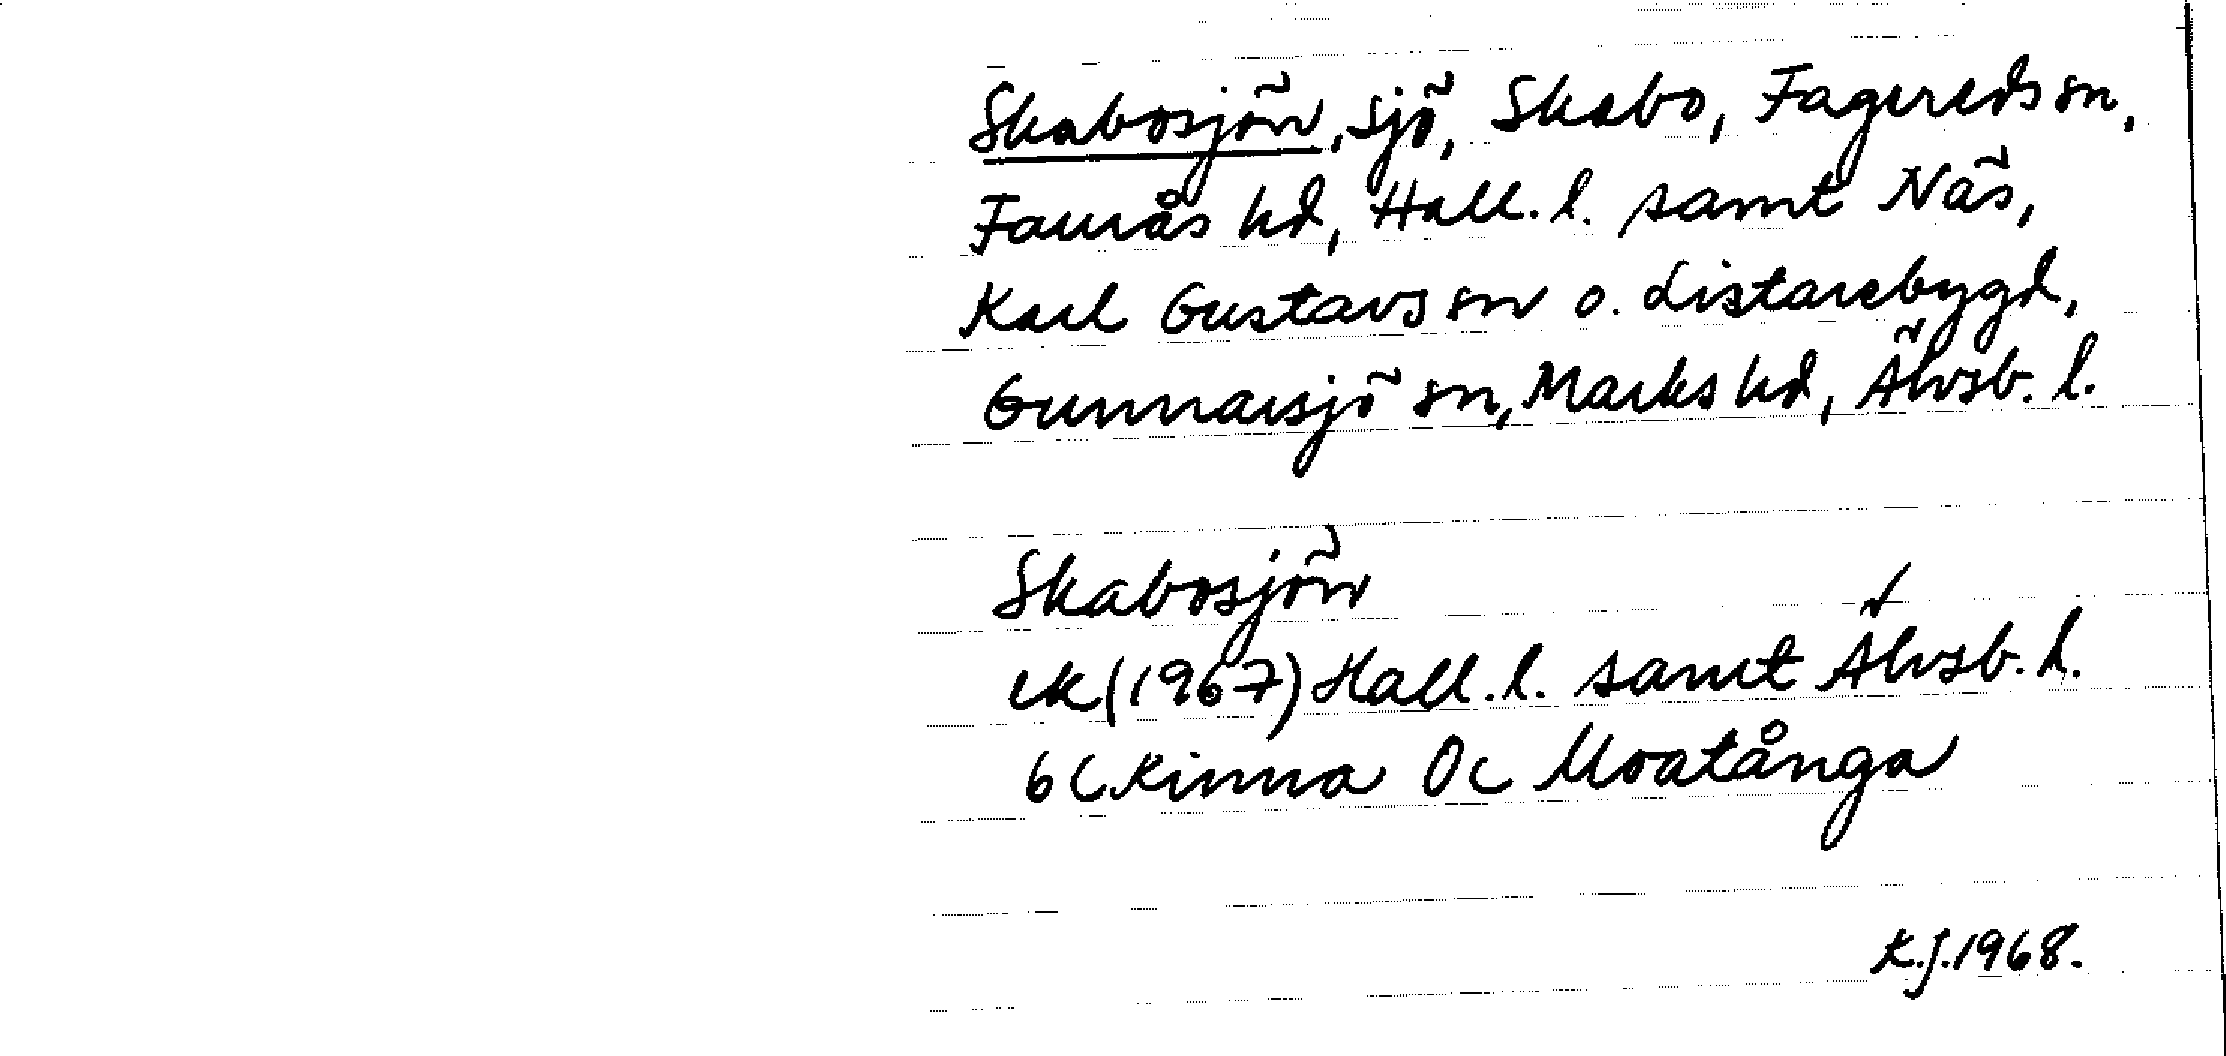 Skabosjön, sjö, Skabo, Fagereds sn,
Faurås hd, Hall. l. samt Näs,
Karl Gustavs sn o. Listarebygd,
Gunnarsjö sn, Marks hd, Älvsb. l.
Skabosjön
ek (1967) Hall. l. samt Älvsb. l.
6C Kinna 0c Moatånga
K.J. 1968.